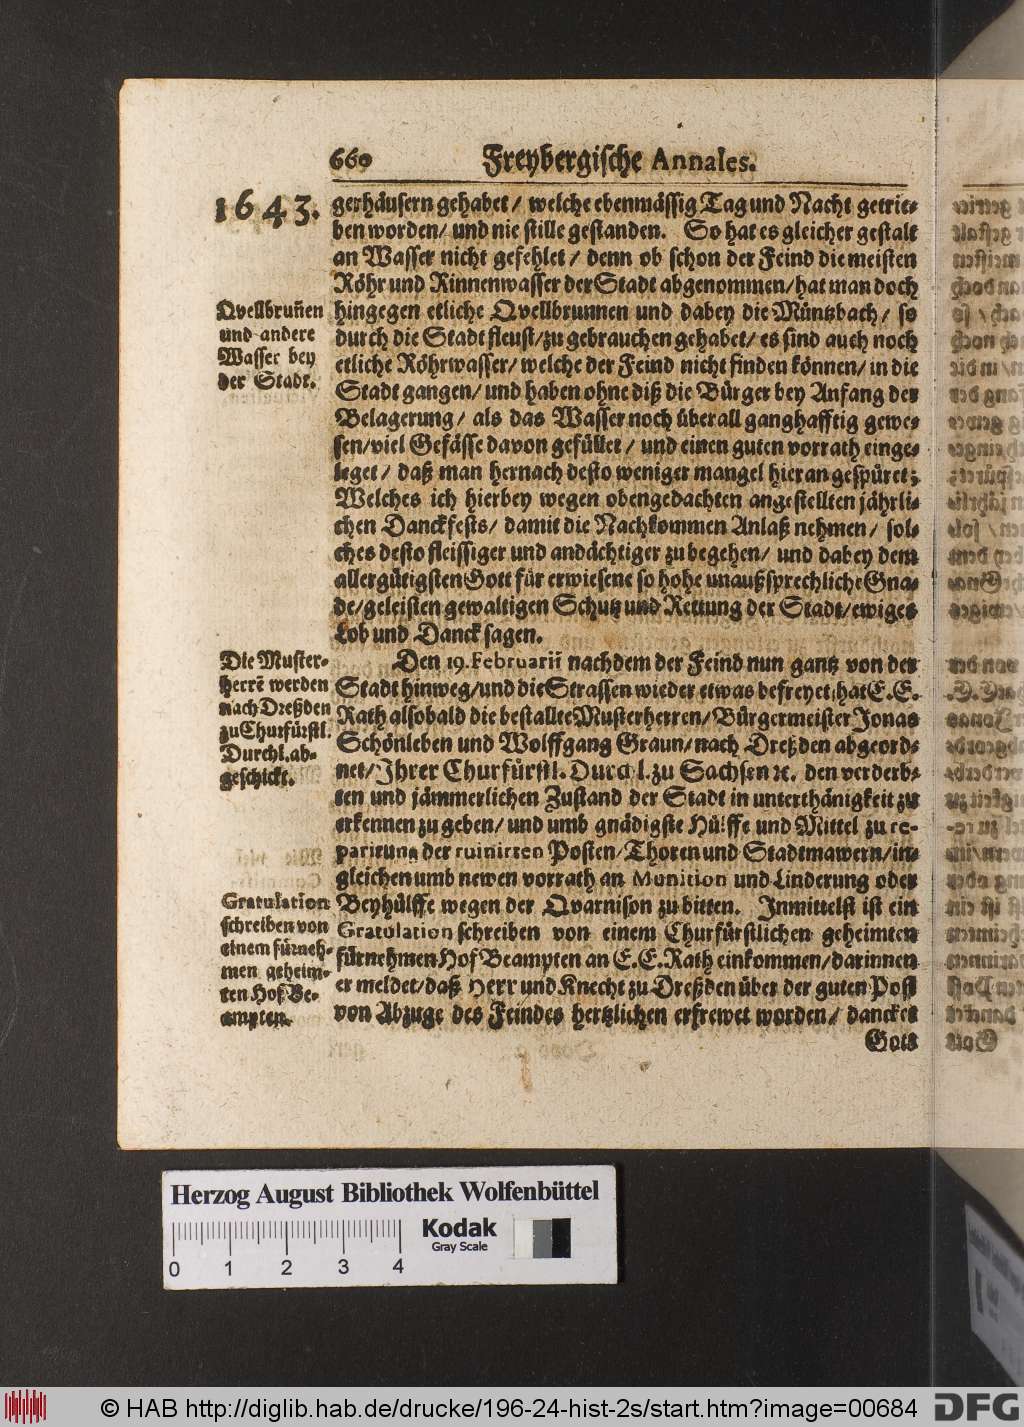 660 Freybergische Annales.
1643.
gerhäusern gehabet / welche ebenmässig Tag und Nacht getrie-
ben worden/ und nie stille gestanden. So hat es gleicher gestalt
an Wasser nicht gefehlet / denn ob schon der Feind die meisten
Röhr und Rinnenwasser der Stadt abgenommen/ hat man doch
Qvellbruñen
und andere
Wasser bey
der Stadt.
hingegen etliche Qvellbrunnen und dabey die Müntzbach/ so
durch die Stadt fleust/zu gebrauchen gehabet/ es sind auch noch
etliche Röhrwasser/ welche der Feind nicht finden können/ in die
Stadt gangen/ und haben ohne diß die Bürger bey Anfang der
Belagerung/ als das Wasser noch überall ganghafftig gewe-
sen/viel Gefässe davon gefüllet / und einen guten vorrath einge-
leget / daß man hernach desto weniger mangel hieran gespüret;
Welches ich hierbey wegen obengedachten angestellten jährli-
chen Danckfests/ damit die Nachkommen Anlaß nehmen/ sol-
ches desto fleissiger und andächtiger zu begehen/ und dabey dem
allergütigsten Gott für erwiesene so hohe unaußsprechliche Gna-
de/geleisten gewaltigen Schutz und Rettung der Stadt/ewiges
Lob und Danck sagen.
Die Muster-
herrẽ werden
nach Dreßden
zu Churfürstl.
Durchl. ab-
geschickt.
Den 19. Februarii nachdem der Feind nun gantz von der
Stadt hinweg/und die Strassen wieder etwas befreyet, hat E. E.
Rath alsobald die bestallte Musterherren/ Bürgermeister Jonas
Schönleben und Wolffgang Graun/ nach Dreßden abgeord-
net/ Ihrer Churfürstl. Durchl. zu Sachsen ꝛc. den verderb-
ten und jämmerlichen Zustand der Stadt in unterthänigkeit zu
erkennen zu geben/ und umb gnädigste Hülffe und Mittel zu re-
parirung der ruinirten Posten/ Thoren und Stadtmawern/ in-
gleichen umb newen vorrath an Munition und Linderung oder
Gratulation
schreiben von
einem fürneh-
men geheim-
ten Hof Be-
ampten.
Beyhülffe wegen der Qvarnison zu bitten. Inmittelst ist ein
Gratulation schreiben von einem Churfürstlichen geheimten
fürnehmen Hof Beampten an E. E. Rath einkommen/ darinnen
er meldet/ daß Herr und Knecht zu Dreßden über der guten Post
von Abzuge des Feindes hertzlichen erfrewet worden/ dancket
Gott
Herzog August Bibliothek Wolfenbüttel
Kodak
Gray Scale
0 1 2 3 4
© HAB http://diglib.hab.de/drucke/196-24-hist-2s/start.htm?image=00684
DFG